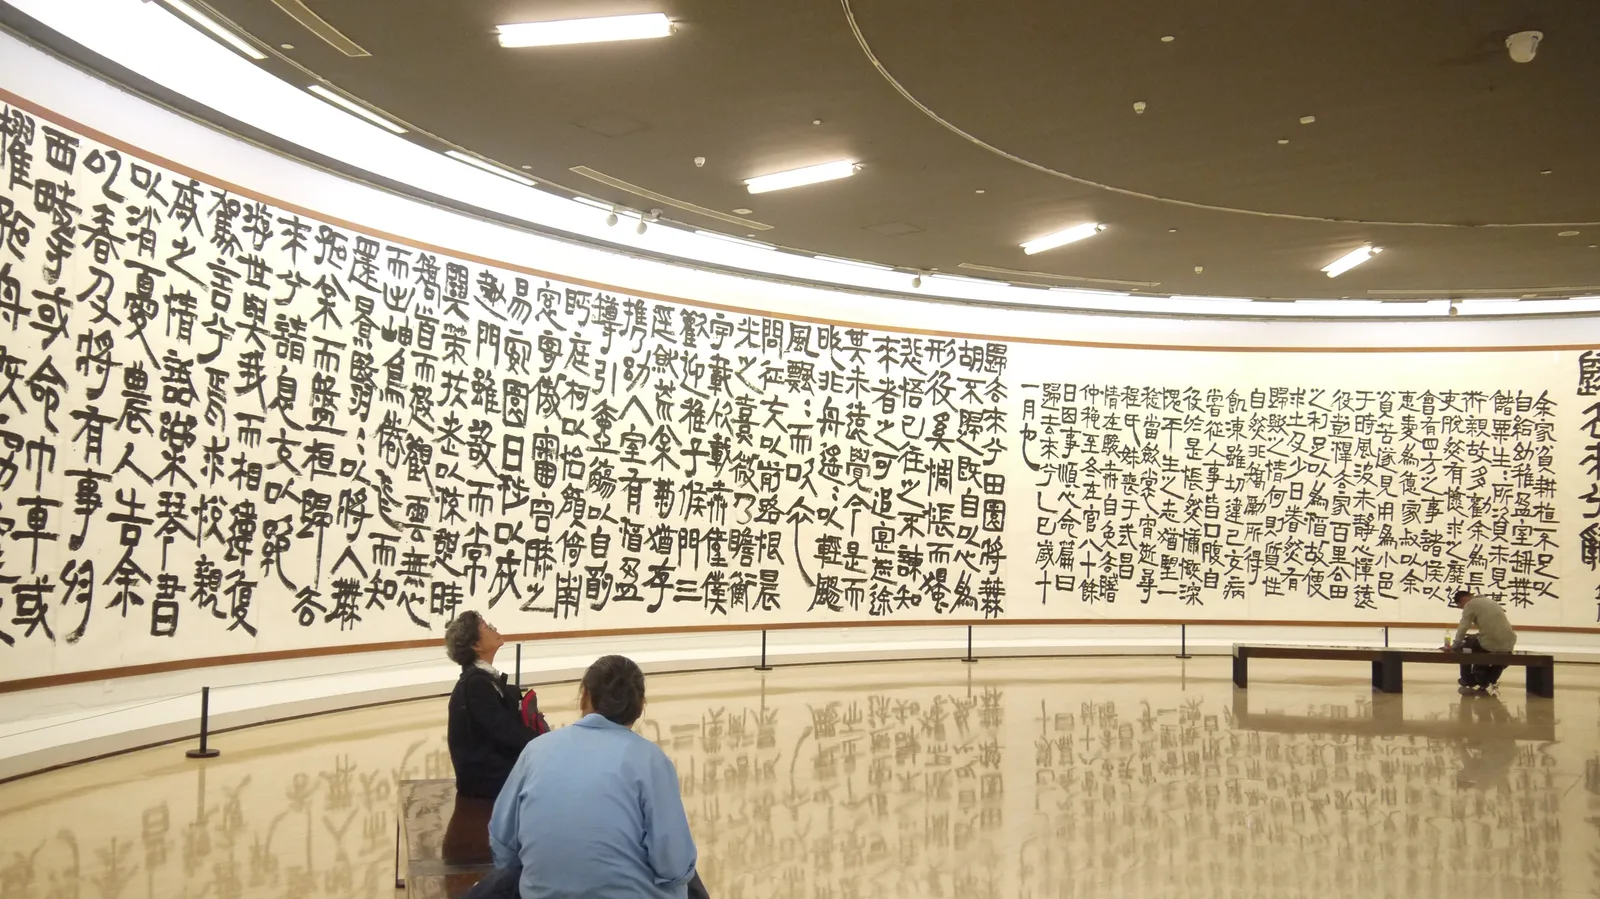 歸去來兮辭
余家貧耕植不足以
自給幼稚盈室缾無
儲粟生々所資未見其
術親故多勸余為長
吏脫然有懷求之靡途
會有四方之事諸侯以
惠愛為德家叔以余
貧苦遂見用為小邑
于時風波未靜心憚遠
役彭澤去家百里公田
之利足以為酒故便
求之及少日眷然有
歸歟之情何則質性
自然非矯勵所得
飢凍雖切違己交病
嘗從人事皆口腹自
役於是悵然慷慨深
愧平生之志猶望一
稔當斂裳宵逝尋
程氏妹喪于武昌
情在駿奔自免去職
仲秋至冬在官八十餘
日因事順心命篇曰
歸去來兮乙巳歲十
一月也
歸去來兮田園將蕪
胡不歸既自以心為
形役奚惆悵而獨
悲悟已往之不諫知
來者之可追寔迷途
其未遠覺今是而
昨非舟遙々以輕颺
風飄々而吹衣
問征夫以前路恨晨
光之熹微乃瞻衡
宇載欣載奔僮僕
歡迎稚子候門三
逕就荒松菊猶存
攜幼入室有酒盈
罇引壺觴以自酌
眄庭柯以怡顏倚南
窗寄傲審容膝之
易安園日涉以成
趣門雖設而常
關策扶老以流憩時
矯首而遐觀雲無心
而出岫鳥倦飛而知
還景翳々以將入撫
孤松而盤桓歸去
來兮請息交以絕
游世與我而相違復
駕言兮焉求悅親
戚之情話樂琴書
以消憂農人告余
以春及將有事於
西疇或命巾車或
櫂孤舟既窈窕以